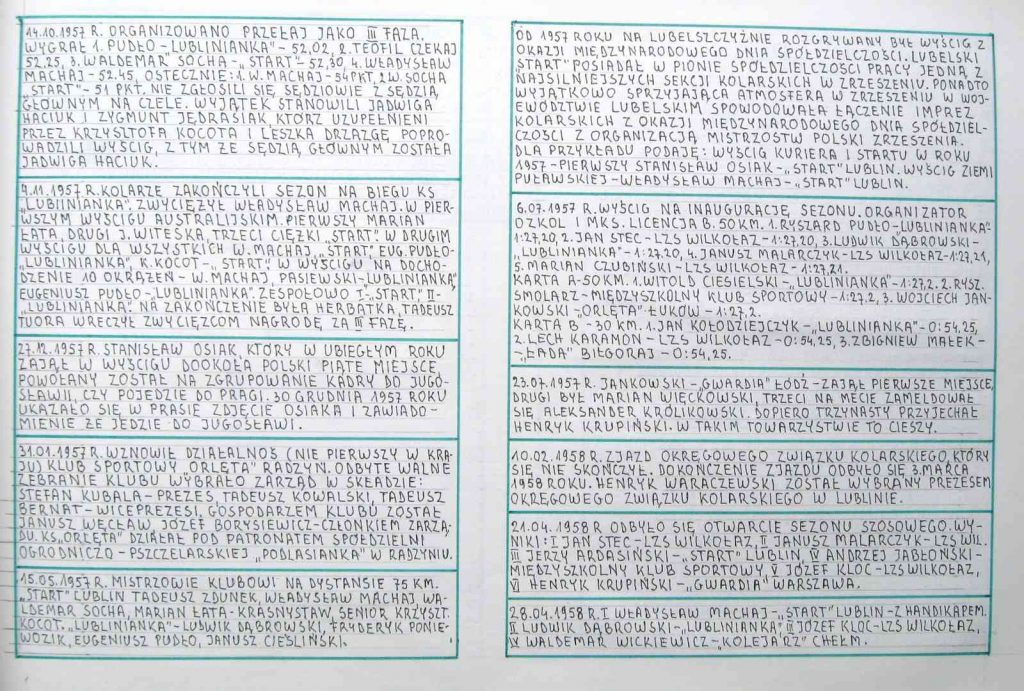 14.10.1957 R. ORGANIZOWANO PRZEŁAJ JAKO III FAZA.
WYGRAŁ 1. PUDŁO-„LUBLINIANKA"- 52,02, 2. TEOFIL CZEKAJ
52.25, 3. WALDEMAR SOCHA-„START"- 52,30, 4. WŁADYSŁAW
MACHAJ - 52.45, OSTECZNIE: 1. W. MACHAJ - 54 PKT, 2 W. SOCHA
„START"- 51 PKT. NIE ZGŁOSILI SIĘ SĘDZIOWIE Z SĘDZIĄ
GŁÓWNYM NA CZELE. WYJĄTEK STANOWILI JADWIGA
HACIUK I ZYGMUNT JĘDRASIAK KTÓRZ UZUPEŁNIENI
PRZEZ KRZYSZTOFA KOCOTA I LESZKA DRZAZGĘ POPRO-
WADZILI WYŚCIG, Z TYM ŻE SĘDZIĄ GŁÓWNYM ZOSTAŁA
JADWIGA HACIUK.
9.11.1957 R. KOLARZE ZAKOŃCZYLI SEZON NA BIEGU KS
„LUBLINIANKA". ZWYCIĘŻYŁ WŁADYSŁAW MACHAJ. W PIER-
WSZYM WYŚCIGU AUSTRALIJSKIM. PIERWSZY MARIAN
ŁATA, DRUGI J. WITESKA, TRZECI CIĘŻKI „START". W DRUGIM
WYŚCIGU DLA WSZYSTKICH W. MACHAJ „START", EUG. PUDŁO-
„LUBLINIANKA", K. KOCOT-„START", W WYŚCIGU NA DOCHO-
DZENIE 10 OKRĄŻEŃ - W. MACHAJ, PASIEWSKI-„LUBLINIANKA",
EUGENIUSZ PUDŁO-„LUBLINIANKA". ZESPOŁOWO I-„START", II-
„LUBLINIANKA". NA ZAKOŃCZENIE BYŁA HERBATKA, TADEUSZ
TUORA WRĘCZYŁ ZWYCIĘZCOM NAGRODĘ ZA III FAZĘ.
27.12.1957 R. STANISŁAW OSIAK, KTÓRY W UBIEGŁYM ROKU
ZAJĄŁ W WYŚCIGU DOOKOŁA POLSKI PIĄTE MIEJSCE,
POWOŁANY ZOSTAŁ NA ZGRUPOWANIE KADRY DO JUGO-
SŁAWII, CZY POJEDZIE DO PRAGI. 30 GRUDNIA 1957 ROKU
UKAZAŁO SIĘ W PRASIE ZDJĘCIE OSIAKA I ZAWIADO-
MIENIE ŻE JEDZIE DO JUGOSŁAWI.
31.01.1957 R. WZNOWIŁ DZIAŁALNOŚ (NIE PIERWSZY W KRA-
JU) KLUB SPORTOWY „ORLĘTA" RADZYN. ODBYTE WALNE
ZEBRANIE KLUBU WYBRAŁO ZARZĄD W SKŁADZIE:
STEFAN KUBALA - PREZES, TADEUSZ KOWALSKI, TADEUSZ
BERNAT - WICEPREZESI, GOSPODARZEM KLUBU ZOSTAŁ
JANUSZ WĘCŁAW, JÓZEF BORYSIEWICZ-CZŁONKIEM ZARZĄ-
DU. KS „ORLĘTA" DZIAŁAŁ POD PATRONATEM SPÓŁDZIELNI
OGRODNICZO - PSZCZELARSKIEJ „PODLASIANKA" W RADZYNIU.
15.05.1957 R. MISTRZOWIE KLUBOWI NA DYSTANSIE 75 KM.
„START" LUBLIN TADEUSZ ZDUNEK, WŁADYSŁAW MACHAJ, WA-
LDEMAR SOCHA, MARIAN ŁATA-KRASNYSTAW, SENIOR KRZYSZT.
KOCOT. „LUBLINIANKA"- LUDWIK DĄBROWSKI, FRYDERYK PONIE-
WOZIK, EUGENIUSZ PUDŁO, JANUSZ CIEŚLIŃSKI.
OD 1957 ROKU NA LUBELSZCZYŹNIE ROZGRYWANY BYŁ WYŚCIG Z
OKAZJI MIĘDZYNARODOWEGO DNIA SPÓŁDZIELCZOŚCI. LUBELSKI
„START" POSIADAŁ W PIONIE SPÓŁDZIELCZOŚCI PRACY JEDNĄ Z
NAJSILNIEJSZYCH SEKCJI KOLARSKICH W ZRZESZENIU. PONADTO
WYJĄTKOWO SPRZYJAJĄCA ATMOSFERA W ZRZESZENIU W WOJ-
EWÓDZTWIE LUBELSKIM SPOWODOWAŁA ŁĄCZENIE IMPREZ
KOLARSKICH Z OKAZJI MIĘDZYNARODOWEGO DNIA SPÓŁDZIEL-
CZOŚCI Z ORGANIZACJĄ MISTRZOSTW POLSKI ZRZESZENIA.
DLA PRZYKŁADU PODAJĘ: WYŚCIG KURIERA I STARTU W ROKU
1957 - PIERWSZY STANISŁAW OSIAK-„START" LUBLIN. WYŚCIG ZIEMI
PUŁAWSKIEJ - WŁADYSŁAW MACHAJ-„START" LUBLIN.
6.07.1957 R. WYŚCIG NA INAUGURACJĘ SEZONU. ORGANIZATOR
OZKOL I MKS. LICENCJA B. 50 KM. 1. RYSZARD PUDŁO-„LUBLINIANKA"-
1:27,20, 2. JAN STEC-LZS WILKOŁAZ - 1:27.20, 3. LUDWIK DĄBROWSKI-
„LUBLINIANKA" - 1:27,20, 4. JANUSZ MALARCZYK-LZS WILKOŁAZ-1:27,21,
5. MARIAN CZUBIŃSKI-LZS WILKOŁAZ - 1:27,21.
KARTA A-50 KM. 1. WITOLD CIESIELSKI-„LUBLINIANKA"-1:27,2. 2. RYSZ.
SMOLARZ-MIĘDZYSZKOLNY KLUB SPORTOWY -1:27,2, 3. WOJCIECH JAN-
KOWSKI-„ORLĘTA" ŁUKÓW - 1:27,2.
KARTA B - 30 KM. 1. JAN KOŁODZIEJCZYK-„LUBLINIANKA"- 0:54,25,
2. LECH KARAMON - LZS WILKOŁAZ - 0:54,25, 3. ZBIGNIEW MAŁEK-
-„ŁADA" BIŁGORAJ - 0:54,25.
23.07.1957 R. JANKOWSKI-„GWARDIA" ŁÓDŹ - ZAJĄŁ PIERWSZE MIEJSCE,
DRUGI BYŁ MARIAN WIĘCKOWSKI, TRZECI NA MECIE ZAMELDOWAŁ
SIĘ ALEKSANDER KRÓLIKOWSKI. DOPIERO TRZYNASTY PRZYJECHAŁ
HENRYK KRUPIŃSKI. W TAKIM TOWARZYSTWIE TO CIESZY.
10.02.1958 R. ZJAZD OKRĘGOWEGO ZWIĄZKU KOLARSKIEGO, KTÓRY
SIĘ NIE SKOŃCZYŁ. DOKOŃCZENIE ZJAZDU ODBYŁO SIĘ 3. MARCA
1958 ROKU. HENRYK WARACZEWSKI ZOSTAŁ WYBRANY PREZESEM
OKRĘGOWEGO ZWIĄZKU KOLARSKIEGO W LUBLINIE.
21.04.1958 R ODBYŁO SIĘ OTWARCIE SEZONU SZOSOWEGO. WY-
NIKI: I JAN STEC-LZS WILKOŁAZ, II JANUSZ MALARCZYK-LZS WIL.
III JERZY ARDASIŃSKI-„START" LUBLIN, IV ANDRZEJ JABŁOŃSKI-
MIĘDZYSZKOLNY KLUB SPORTOWY, V JÓZEF KLOC-LZS WILKOŁAZ,
VI HENRYK KRUPIŃSKI-„GWARDIA" WARSZAWA.
28.04.1958 R. I WŁADYSŁAW MACHAJ-„START" LUBLIN-Z HANDIKAPEM.
II LUDWIK DĄBROWSKI-„LUBLINIANKA", III JÓZEF KLOC-LZS WILKOŁAZ,
IV WALDEMAR WICKIEWICZ-„KOLEJARZ" CHEŁM.